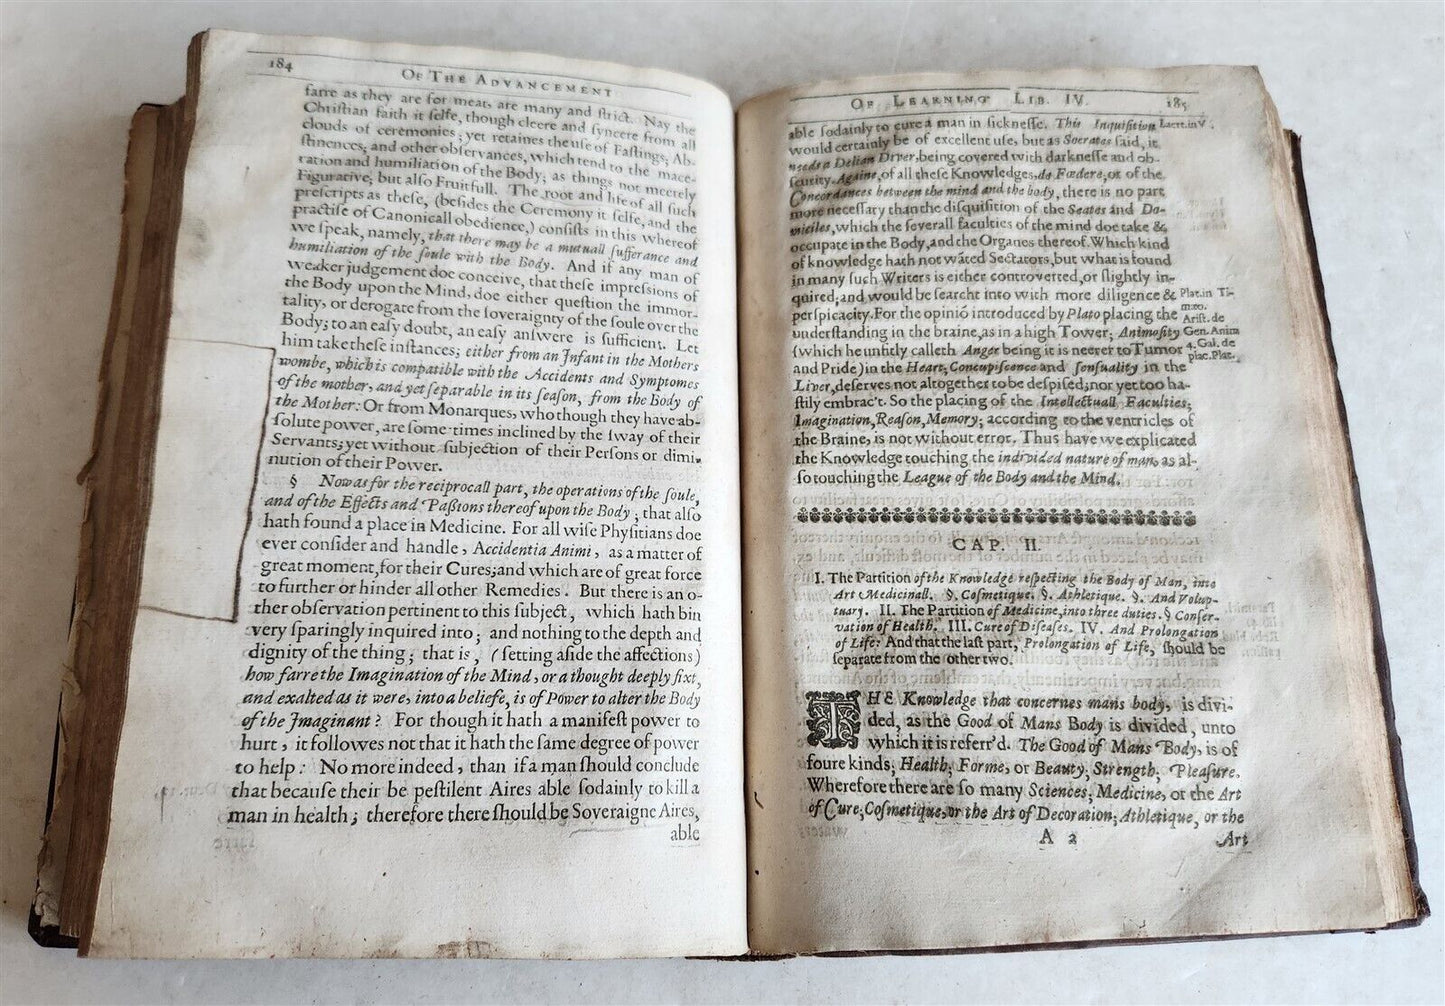 184
OF THE ADVANCEMENT
farre as they are for meat, are many and strict. Nay the
Christian faith it selfe, though cleere and syncere from all
clouds of ceremonies, yet retaines the use of Fastings; Ab-
stinences; and other observances, which tend to the mace-
ration and humiliation of the Body; as things not meerely
Figurative, but also Fruitfull. The root and life of all such
prescripts as these, (besides the Ceremony it selfe, and the
practise of Canonicall obedience,) consists in this whereof
we speak, namely, that there may be a mutuall sufferance and
humiliation of the soule with the Body. And if any man of
weaker judgement doe conceive, that these impressions of
the Body upon the Mind, doe either question the immor-
tality, or derogate from the soveraignty of the soule over the
Body; to an easy doubt, an easy answere is sufficient. Let
him take these instances; either from an Infant in the Mothers
wombe, which is compatible with the Accidents and Symptomes
of the mother, and yet separable in its season, from the Body of
the Mother: Or from Monarques, who though they have ab-
solute power, are some-times inclined by the sway of their
Servants; yet without subjection of their Persons or dimi-
nution of their Power.
§ Now as for the reciprocall part, the operations of the soule,
and of the Effects and Passions thereof upon the Body; that also
hath found a place in Medicine. For all wise Physitians doe
ever consider and handle, Accidentia Animi, as a matter of
great moment, for their Cures; and which are of great force
to further or hinder all other Remedies. But there is an o-
ther observation pertinent to this subject, which hath bin
very sparingly inquired into; and nothing to the depth and
dignity of the thing; that is, (setting aside the affections)
how farre the Imagination of the Mind, or a thought deeply fixt,
and exalted as it were, into a beliefe, is of Power to alter the Body
of the Imaginant? For though it hath a manifest power to
hurt, it followes not that it hath the same degree of power
to help: No more indeed, than if a man should conclude
that because their be pestilent Aires able sodainly to kill a
man in health; therefore there should be Soveraigne Aires,
able
OF LEARNING LIB. IV.
185
able sodainly to cure a man in sicknesse. This Inquisition Laert. in V.
would certainly be of excellent use, but as Socrates said, it
needs a Delian Diver, being covered with darknesse and ob-
scurity. Againe, of all these Knowledges, de Fœdere, or of the
Concordances between the mind and the body, there is no part
more necessary than the disquisition of the Seates and Do-
miciles, which the severall faculties of the mind doe take &
occupate in the Body, and the Organes thereof. Which kind
of knowledge hath not wāted Sectators, but what is found
in many such Writers is either controverted, or slightly in-
quired; and would be searcht into with more diligence & Plat. in Ti-
perspicacity. For the opiniō introduced by Plato placing the mæo.
understanding in the braine, as in a high Tower; Animosity Arist. de Gen. Anim
(which he unfitly calleth Anger being it is neerer to Tumor 4. Gal. de
and Pride) in the Heart; Concupiscence and sensuality in the plac. Plat.
Liver, deserves not altogether to be despised; nor yet too ha-
stily embrac't. So the placing of the Intellectuall Faculties;
Imagination, Reason, Memory; according to the ventricles of
the Braine, is not without error. Thus have we explicated
the Knowledge touching the individed nature of man, as al-
so touching the League of the Body and the Mind.
CAP. II.
I. The Partition of the Knowledge respecting the Body of Man, into
Art Medicinall. §. Cosmetique. §. Athletique. §. And Volup-
tuary. II. The Partition of Medicine, into three duties. § Conser-
vation of Health. III. Cure of Diseases. IV. And Prolongation
of Life: And that the last part, Prolongation of Life, should be
separate from the other two.
THE Knowledge that concernes mans body, is divi-
ded, as the Good of Mans Body is divided, unto
which it is referr'd. The Good of Mans Body, is of
foure kinds; Health; Forme, or Beauty; Strength; Pleasure.
Wherefore there are so many Sciences; Medicine, or the Art
of Cure; Cosmetique, or the Art of Decoration; Athletique, or the
A a 2
Art